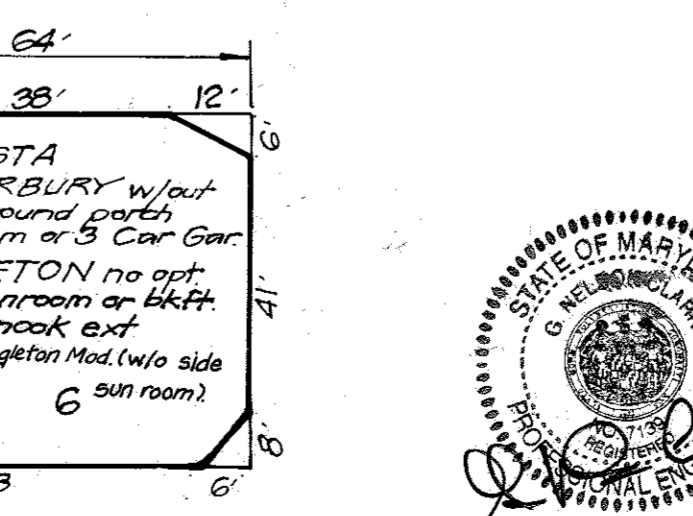 64'
38' 12'
6'
STA
RBURY w/out
ound porch
m or 3 Car Gar.
ETON no opt.
nroom or bkft.
nook ext
gleton Mod. (w/o side
6 sun room).
41'
8'
3 6'
STATE OF MARYL
G. NELSON CLAR
NO. 7139
REGISTERED
PROFESSIONAL ENG